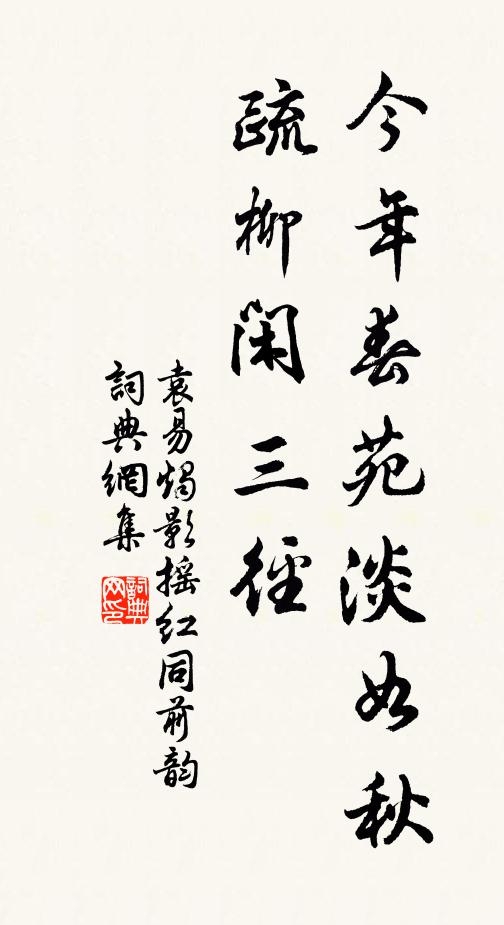 今年春苑淡如秋
疏柳閑三徑
袁易燭影搖紅同前韵
詞典網集
詞典网印